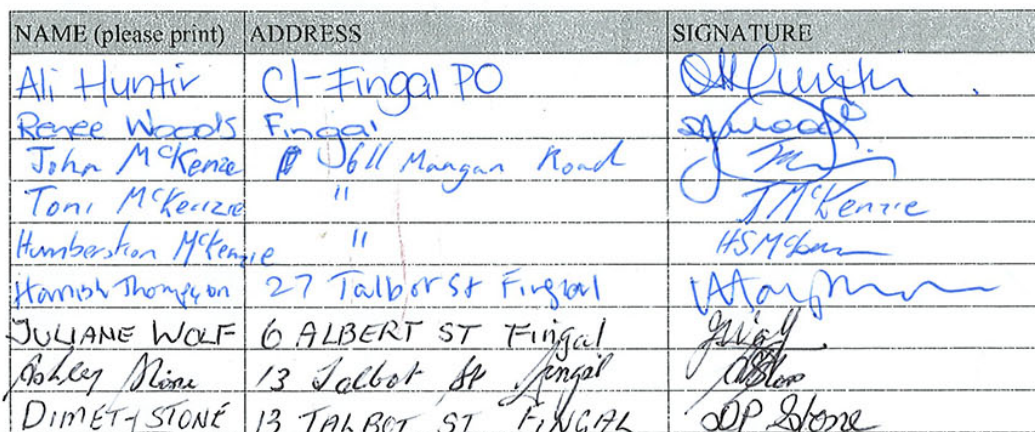 NAME (please print) ADDRESS SIGNATURE
Ali Huntir C/- Fingal PO
Renee Woods Fingal
John McKenzie Mangan Road
Toni McKenzie " TMcKenzie
Humberston McKenzie "
Hamish Thompson 27 Talbot St Fingal
JULIANE WOLF 6 ALBERT ST Fingal
Ashley Stone 13 Talbot St Fingal
STONE 13 TALBOT ST FINGAL DP Stone